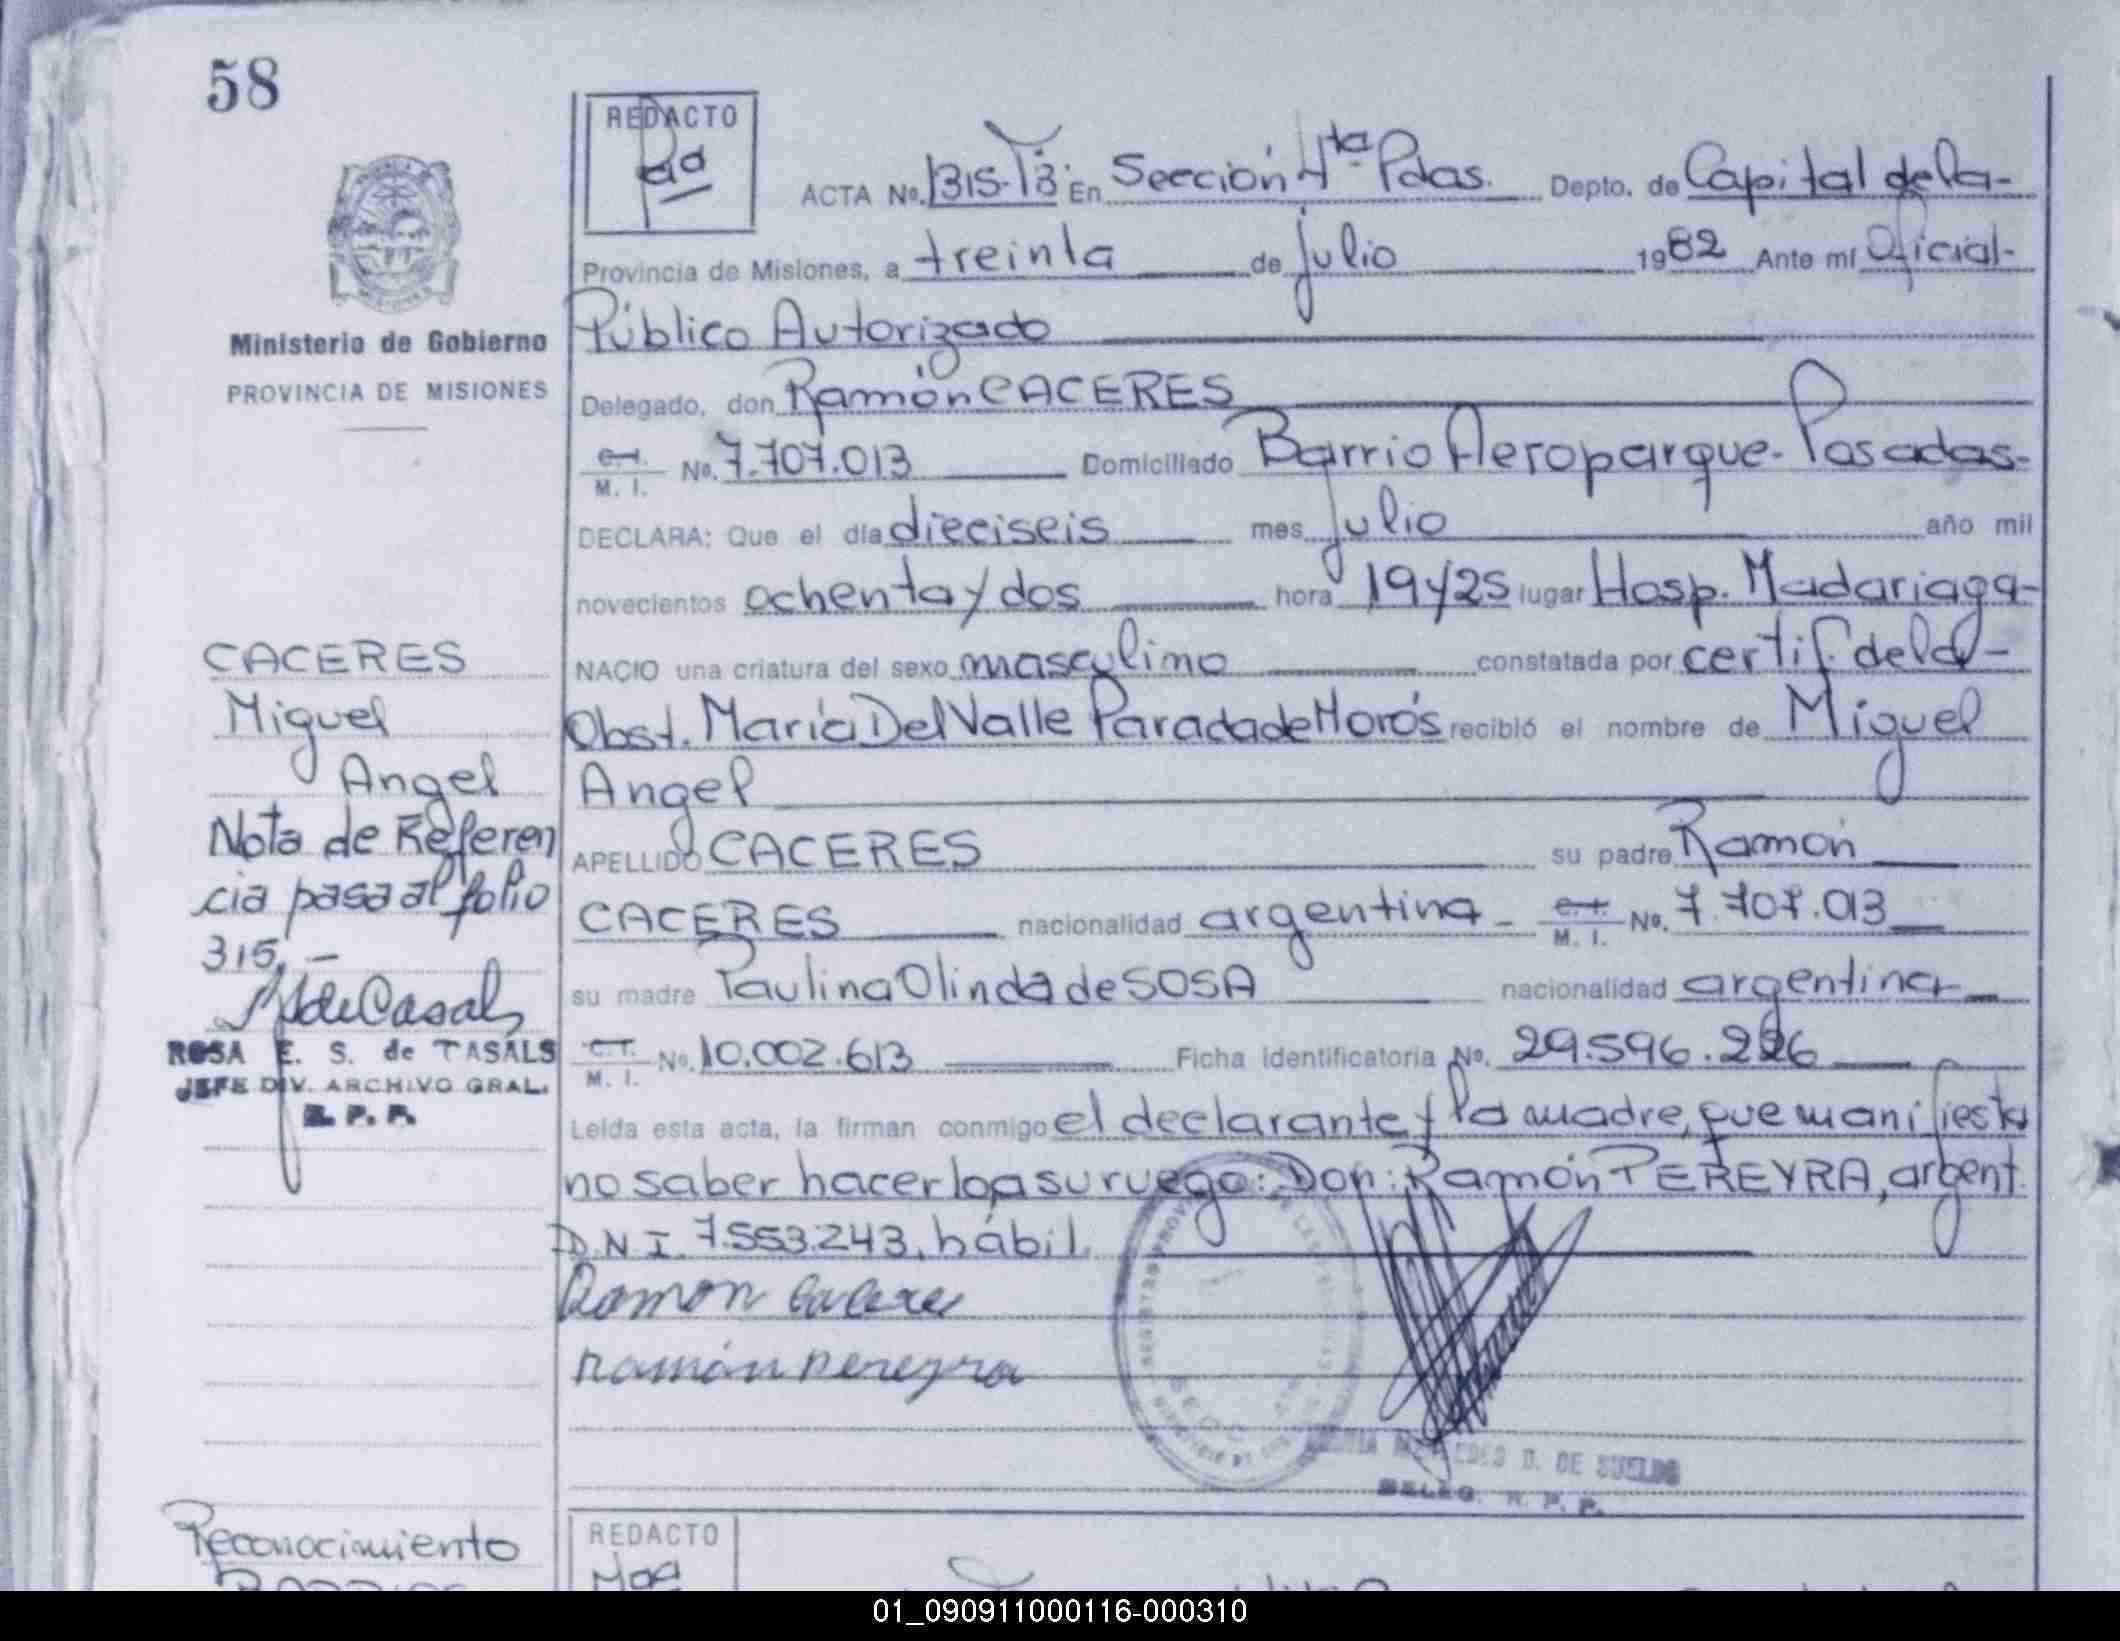 58
REDACTO
ACTA Nº. 1315-Tº3 En Sección 4ta Pdas. Depto. de Capital de la-
Provincia de Misiones, a treinta de julio 1982 Ante mí Oficial-
Público Autorizado
Ministerio de Gobierno
PROVINCIA DE MISIONES
Delegado, don Ramón CACERES
C.I. M. I. Nº. 7.707.013 Domiciliado Barrio Aeroparque- Posadas-
DECLARA: Que el día dieciseis mes julio año mil
novecientos ochenta y dos hora 19y25 lugar Hosp. Madariaga-
NACIO una criatura del sexo masculino constatada por certif. de la-
Obst. María Del Valle Parada de Morós recibió el nombre de Miguel
Angel
APELLIDO CACERES su padre Ramón
CACERES nacionalidad argentina - C.I. M. I. Nº. 7.707.013
su madre Paulina Olinda de SOSA nacionalidad argentina
C.I. M. I. Nº. 10.002.613 Ficha identificatoria Nº. 29.596.226
Leída esta acta, la firman conmigo el declarante y la madre, que manifiesta
no saber hacerlo a su ruego: Don: Ramón PEREYRA, argent.
D.N.I. 7.553.243, hábil.
Ramon Caceres
Ramón Pereyra
CACERES
Miguel
Angel
Nota de Referen
cia pasa al folio
315.-
ROSA E. S. de TASALS
JEFE DIV. ARCHIVO GRAL.
R. P. P.
D. DE SUELDO
DELEG. R. P. P.
Reconocimiento
REDACTO
01_090911000116-000310